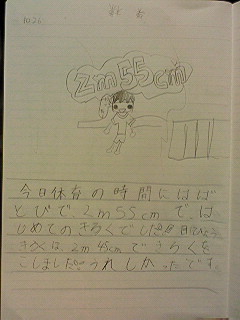 2m55cm
今日休育の時間にはば
とびで、2m55cmで、は
じめてのきろくでした!!
きろくは、2m45cmできろくを
こしました!!うれしかったです。